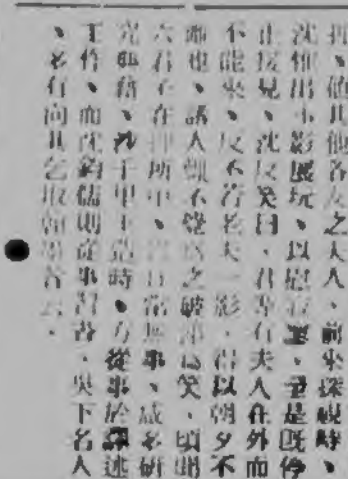 折、値其他各友之夫人、前來探視時、
沈惟出小影展玩、以慰寂寞、至是既停
止接見、沈反笑曰、君等有夫人在外而
不能來、反不若老夫一影、得以朝夕不
離也、諸人聞不覺爲之破涕爲笑、頃聞
六君子在押所中、日常無事、咸多研
究典籍、沙千里王造時、方從事於譯述
工作、而沈鈞儒則從事習書、吳下名人
、多有向其乞取